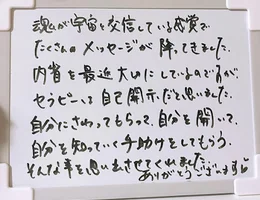 魂が宇宙と交信している感覚で
たくさんのメッセージが降ってきました。
内省を最近大切にしているのですが、
セラピーって自己開示だと思いました。
自分にさわってもらって、自分を開いて、
自分を知っていく手助けをしてもらう。
そんな事を思い出させてくれました。
ありがとうございます